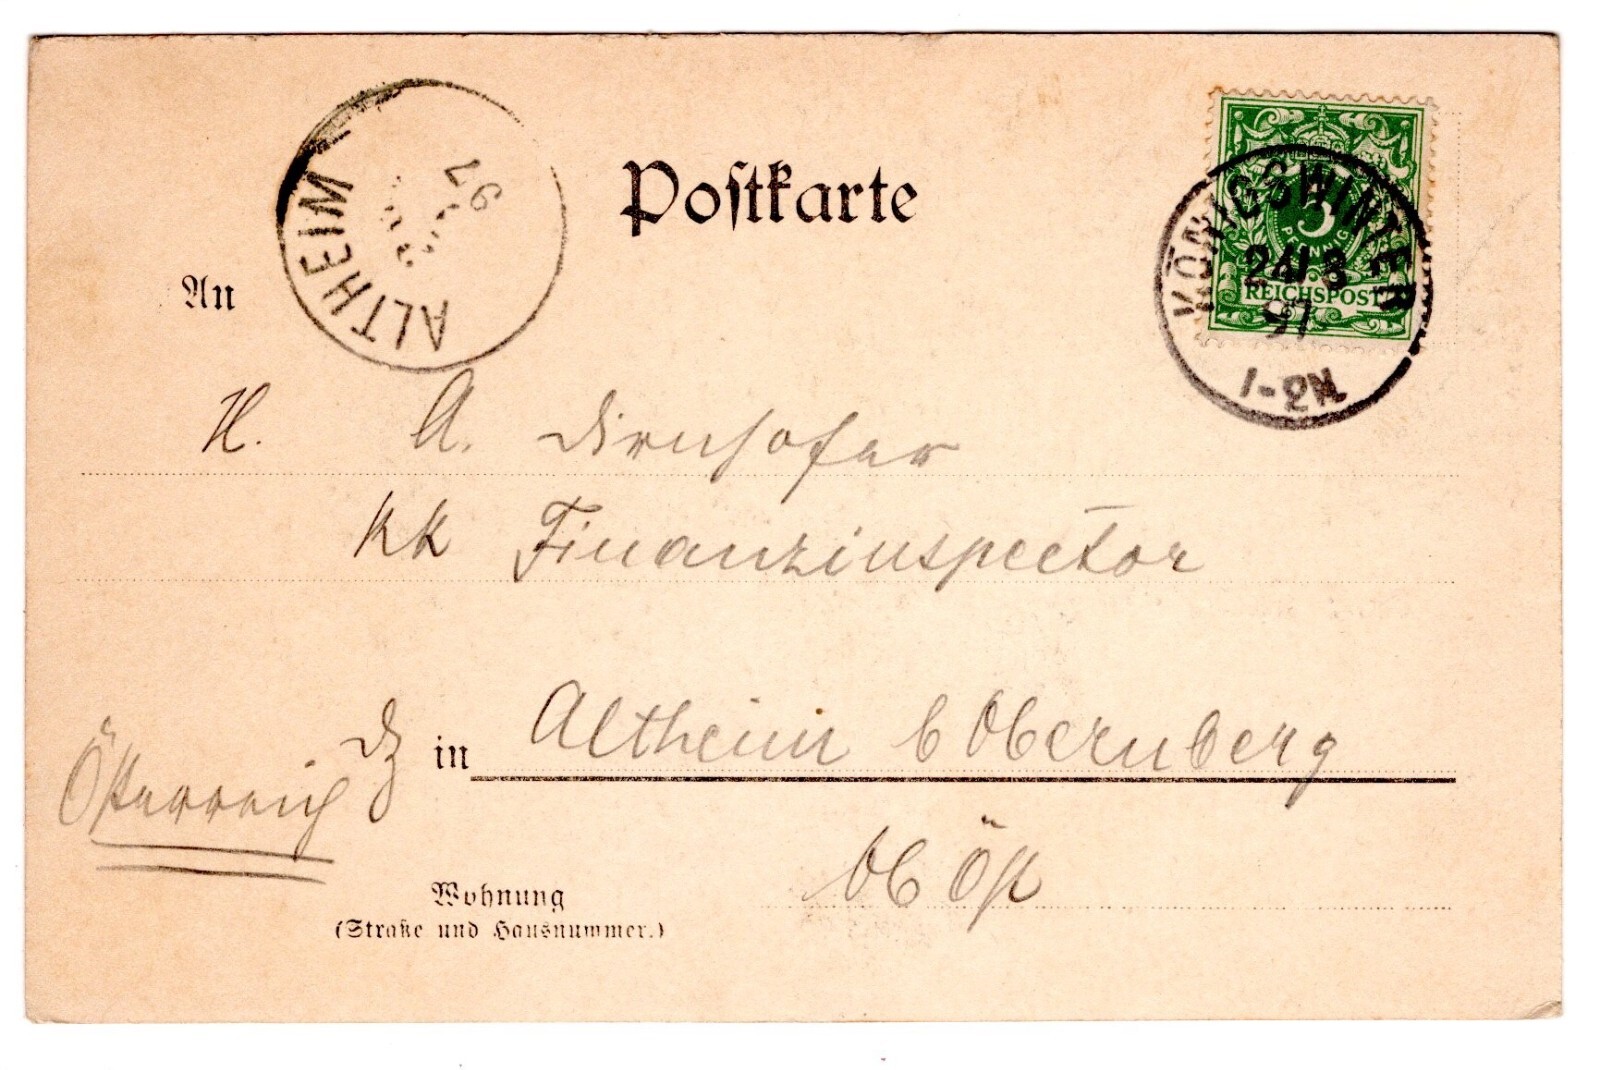 Postkarte
ALTHEIM
97
5
PFENNIG
REICHSPOST
KÖNIGSWINTER
24/8
97
1-2N.
An
H. A. Dirnhofer
kk Finanzinspector
in Altheim b Obernberg
Österreich
Ob Öst
Wohnung
(Straße und Hausnummer.)